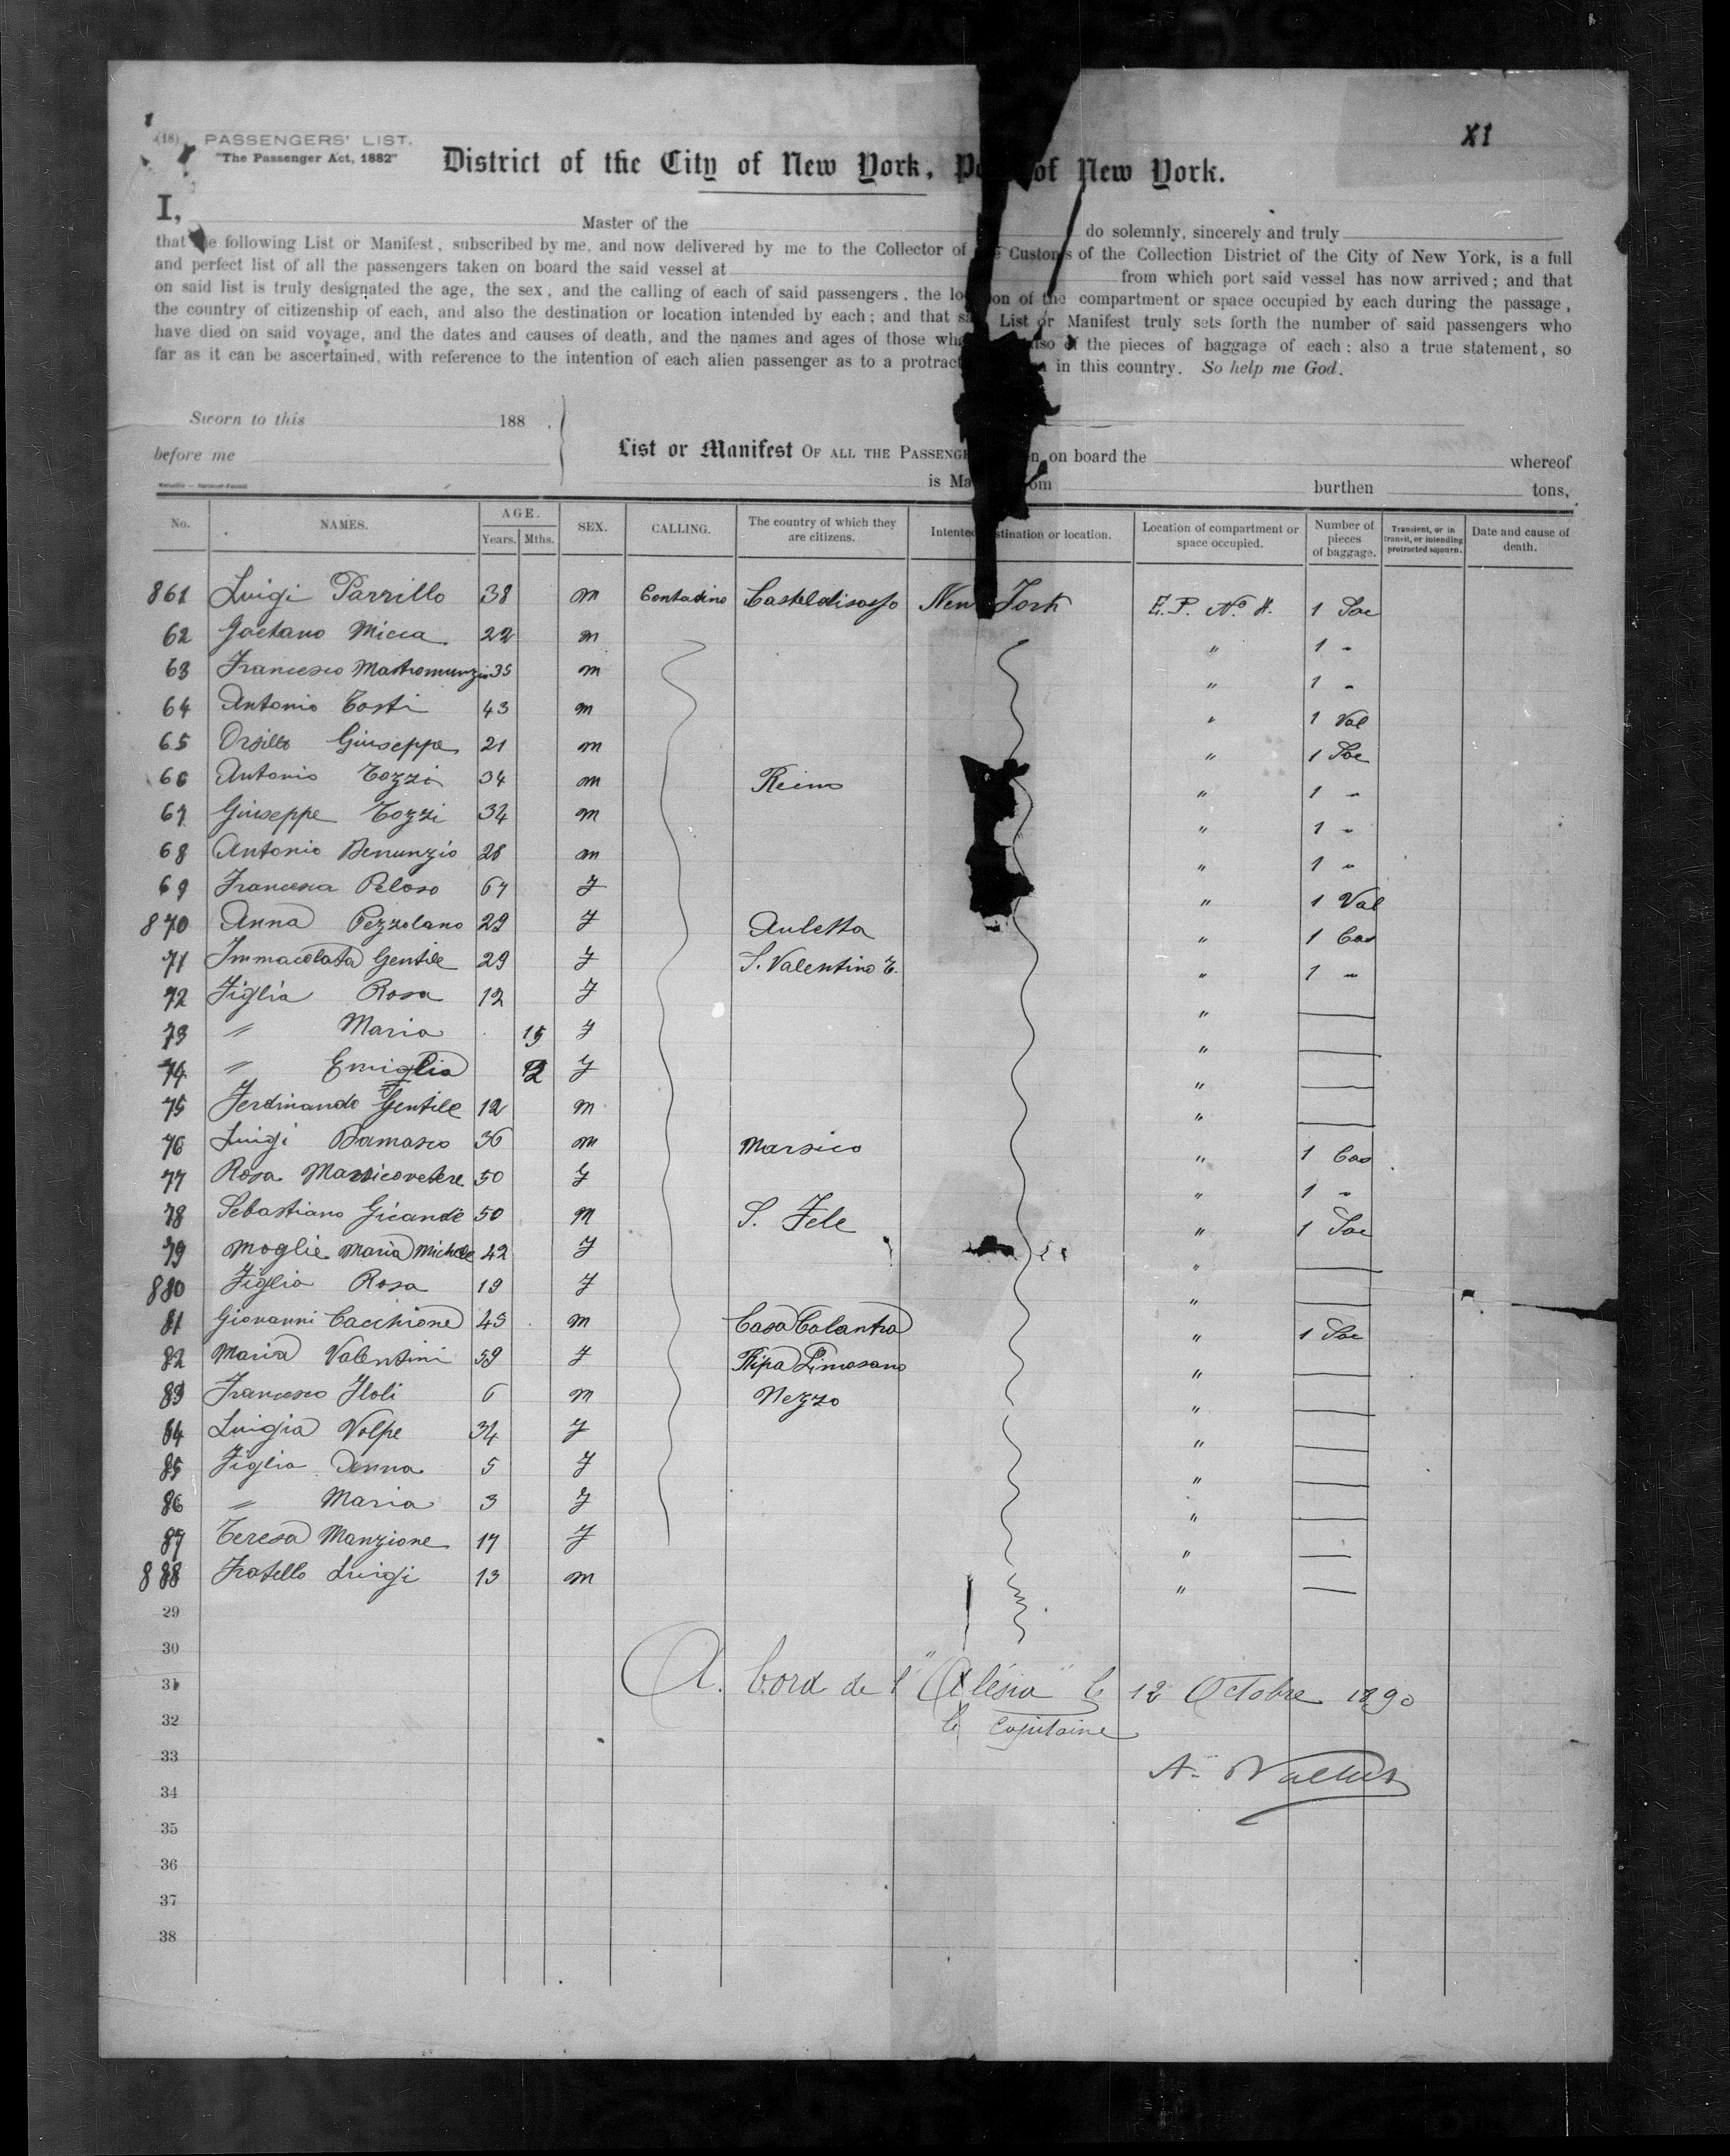 XI
(18) PASSENGERS' LIST.
"The Passenger Act, 1882"
District of the City of New York, Po of New York.
I, Master of the do solemnly, sincerely and truly
that he following List or Manifest, subscribed by me, and now delivered by me to the Collector of e Customs of the Collection District of the City of New York, is a full
and perfect list of all the passengers taken on board the said vessel at from which port said vessel has now arrived; and that
on said list is truly designated the age, the sex, and the calling of each of said passengers, the lo on of the compartment or space occupied by each during the passage,
the country of citizenship of each, and also the destination or location intended by each; and that s List or Manifest truly sets forth the number of said passengers who
have died on said voyage, and the dates and causes of death, and the names and ages of those wh also of the pieces of baggage of each: also a true statement, so
far as it can be ascertained, with reference to the intention of each alien passenger as to a protract in this country. So help me God.
Sworn to this 188 .
before me
List or Manifest OF ALL THE PASSENGE en on board the whereof
is Ma om burthen tons,
No. NAMES. AGE. Years. Mths. SEX. CALLING. The country of which they are citizens. Intented stination or location. Location of compartment or space occupied. Number of pieces of baggage. Transient, or in transit, or intending protracted sojourn. Date and cause of death.
861 Luigi Parrillo 38 m Contadino Casteldisasso New York E. P. No. H. 1 Sac
62 Gaetano Micca 22 m " 1 "
63 Francesco Mastromunzio 35 m " 1 "
64 Antonio Tosti 43 m " 1 Val
65 Orsillo Giuseppe 21 m " 1 Sac
66 Antonio Tozzi 34 m Reino " 1 "
67 Giuseppe Tozzi 32 m " 1 "
68 Antonio Denunzio 28 m " 1 "
69 Francesca Peloso 67 f " 1 Val
870 Anna Pezzolano 29 f Auletta " 1 Cas
71 Immacolata Gentile 29 f S. Valentino T. " 1 "
72 Figlia Rosa 12 f "
73 " Maria 15 f "
74 " Emiglia 2 f "
75 Ferdinando Gentile 12 m "
76 Luigi Damasco 36 m Marsico " 1 Cas
77 Rosa Marsicovetere 50 f " 1 "
78 Sebastiano Gicande 50 m S. Fele " 1 Sac
79 Moglie Maria Michele 42 f "
880 Figlia Rosa 19 f "
81 Giovanni Cacchione 45 m Casa Calantra " 1 Sac
82 Maria Valentini 59 f Ripa Limosano "
83 Francesco Iloli 6 m Nezzo "
84 Luigia Volpe 34 f "
85 Figlia Anna 5 f "
86 " Maria 3 f "
87 Teresa Manzione 17 f "
888 Fratello Luigi 13 m "
29
30
31 A. bord de l' "Alésia" le 12 Octobre 1890
32 le Capitaine
33
34
35
36
37
38